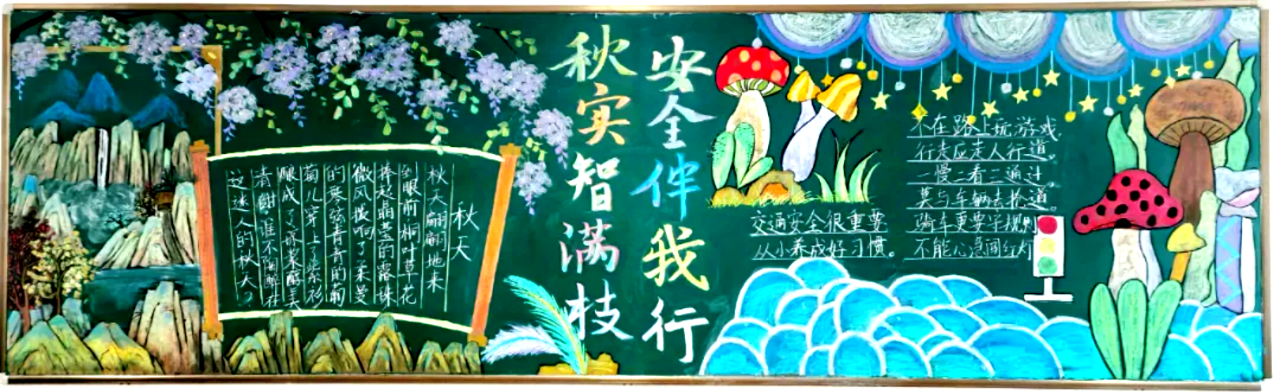 秋实智满枝
安全伴我行
秋天
秋天翩翩地来
到眼前桐叶草花
捧起晶莹的露珠
微风拨响了莱曼
的琴弦青青的葡
萄儿穿上了紫衫
酿成了琼浆醇美
清甜谁不陶醉在
这迷人的秋天？
交通安全很重要
从小养成好习惯。
不在路上玩游戏
行走应走人行道。
一慢二看三通过
莫与车辆去抢道。
骑车更要守规则
不能心急闯红灯